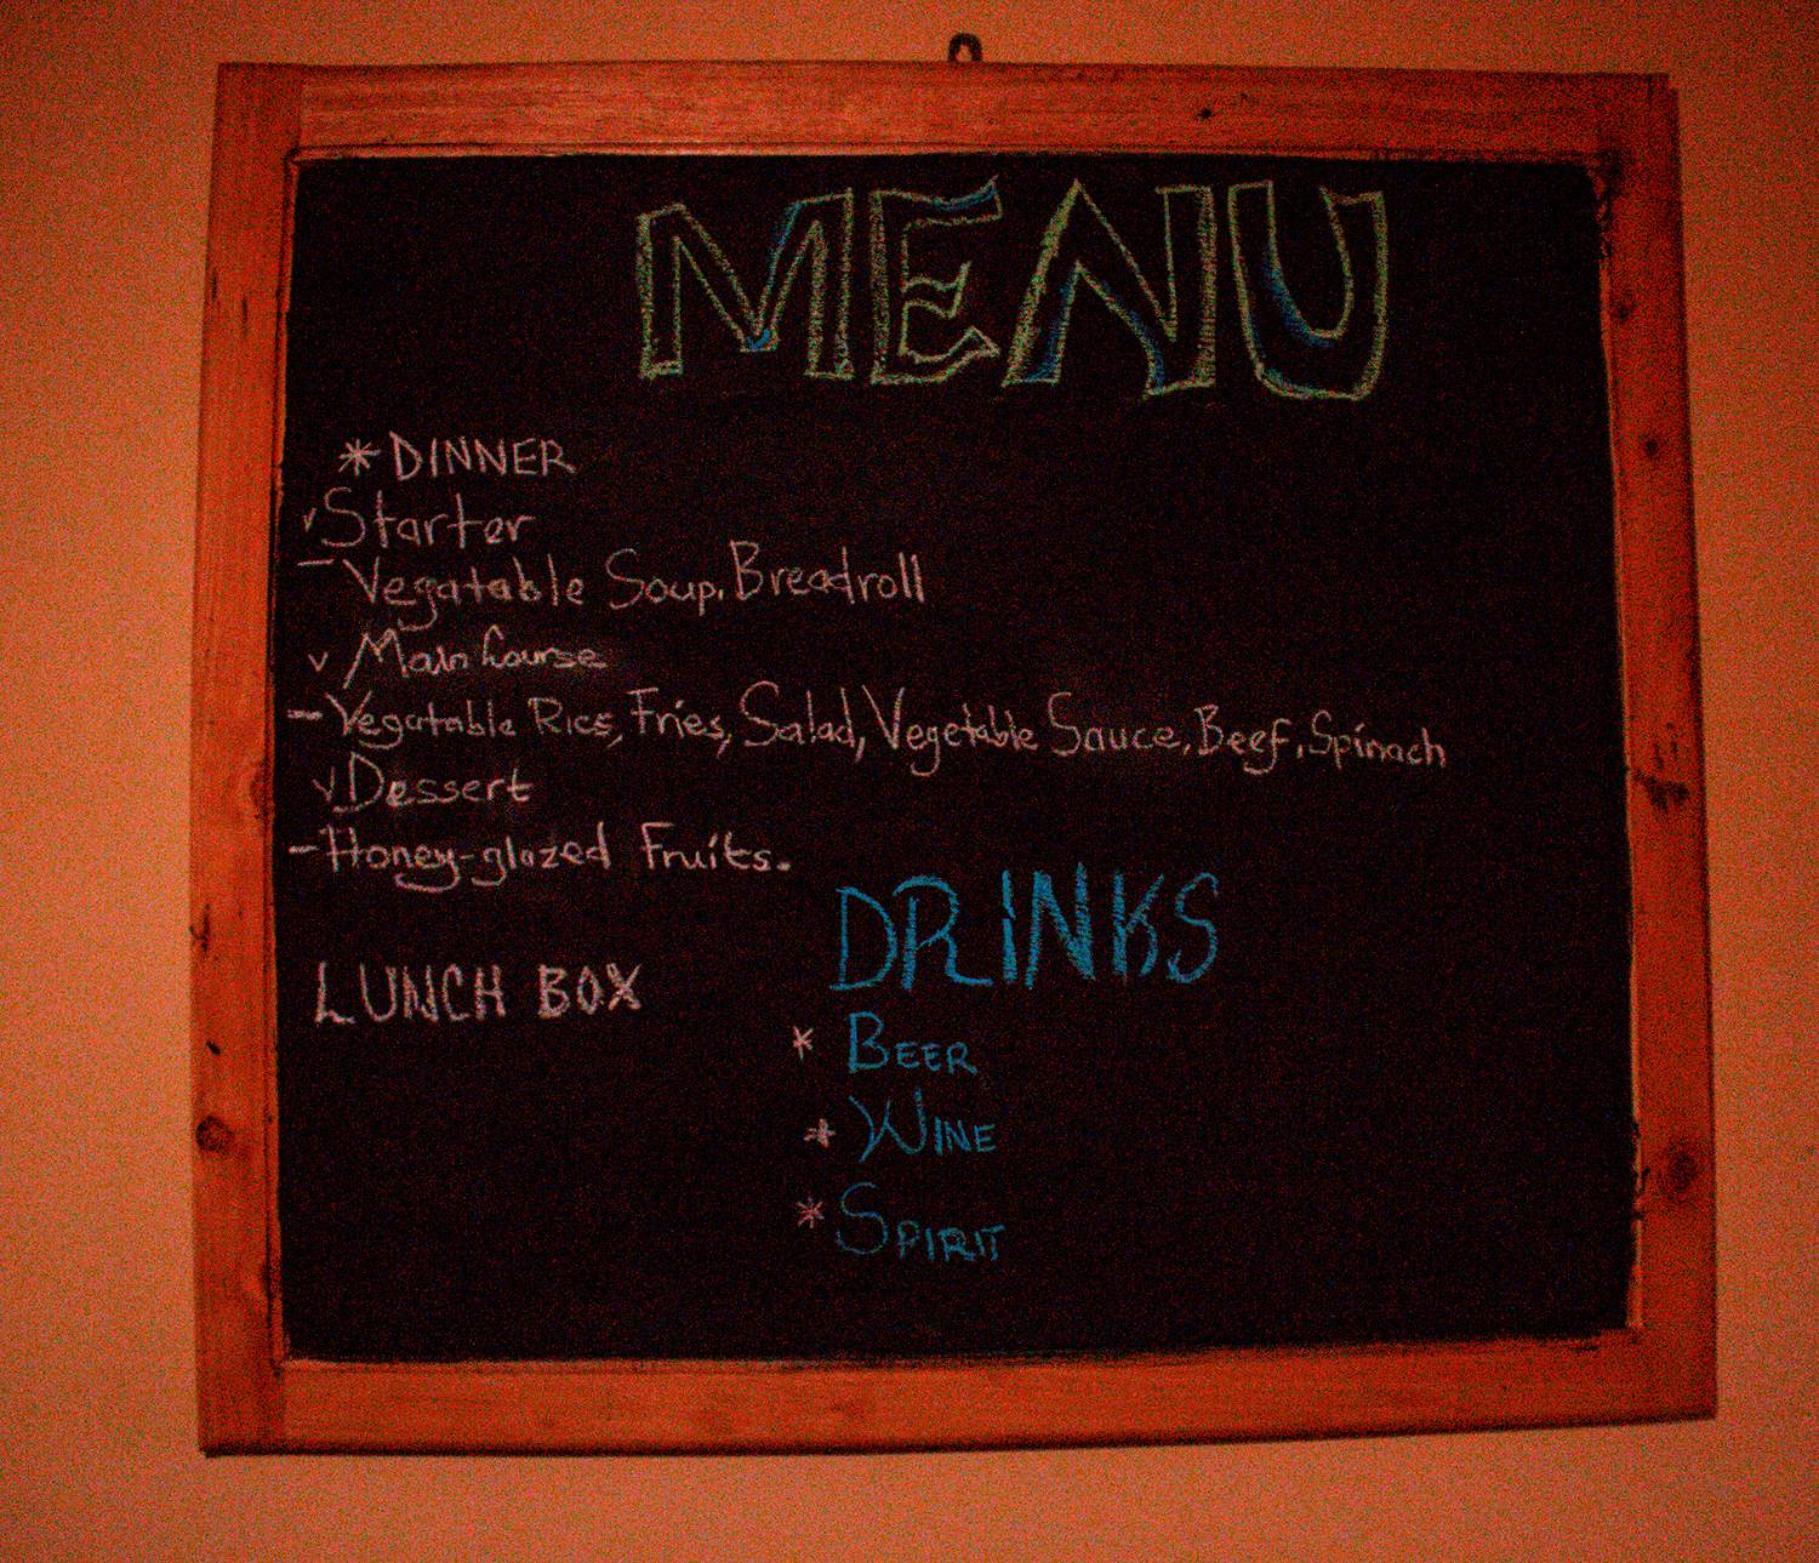 MENU
* DINNER
✓ Starter
- Vegatable Soup, Breadroll
✓ Main Course
- Vegatable Rice, Fries, Salad, Vegetable Sauce, Beef, Spinach
✓ Dessert
- Honey-glazed Fruits.
LUNCH BOX
DRINKS
* BEER
* WINE
* SPIRIT